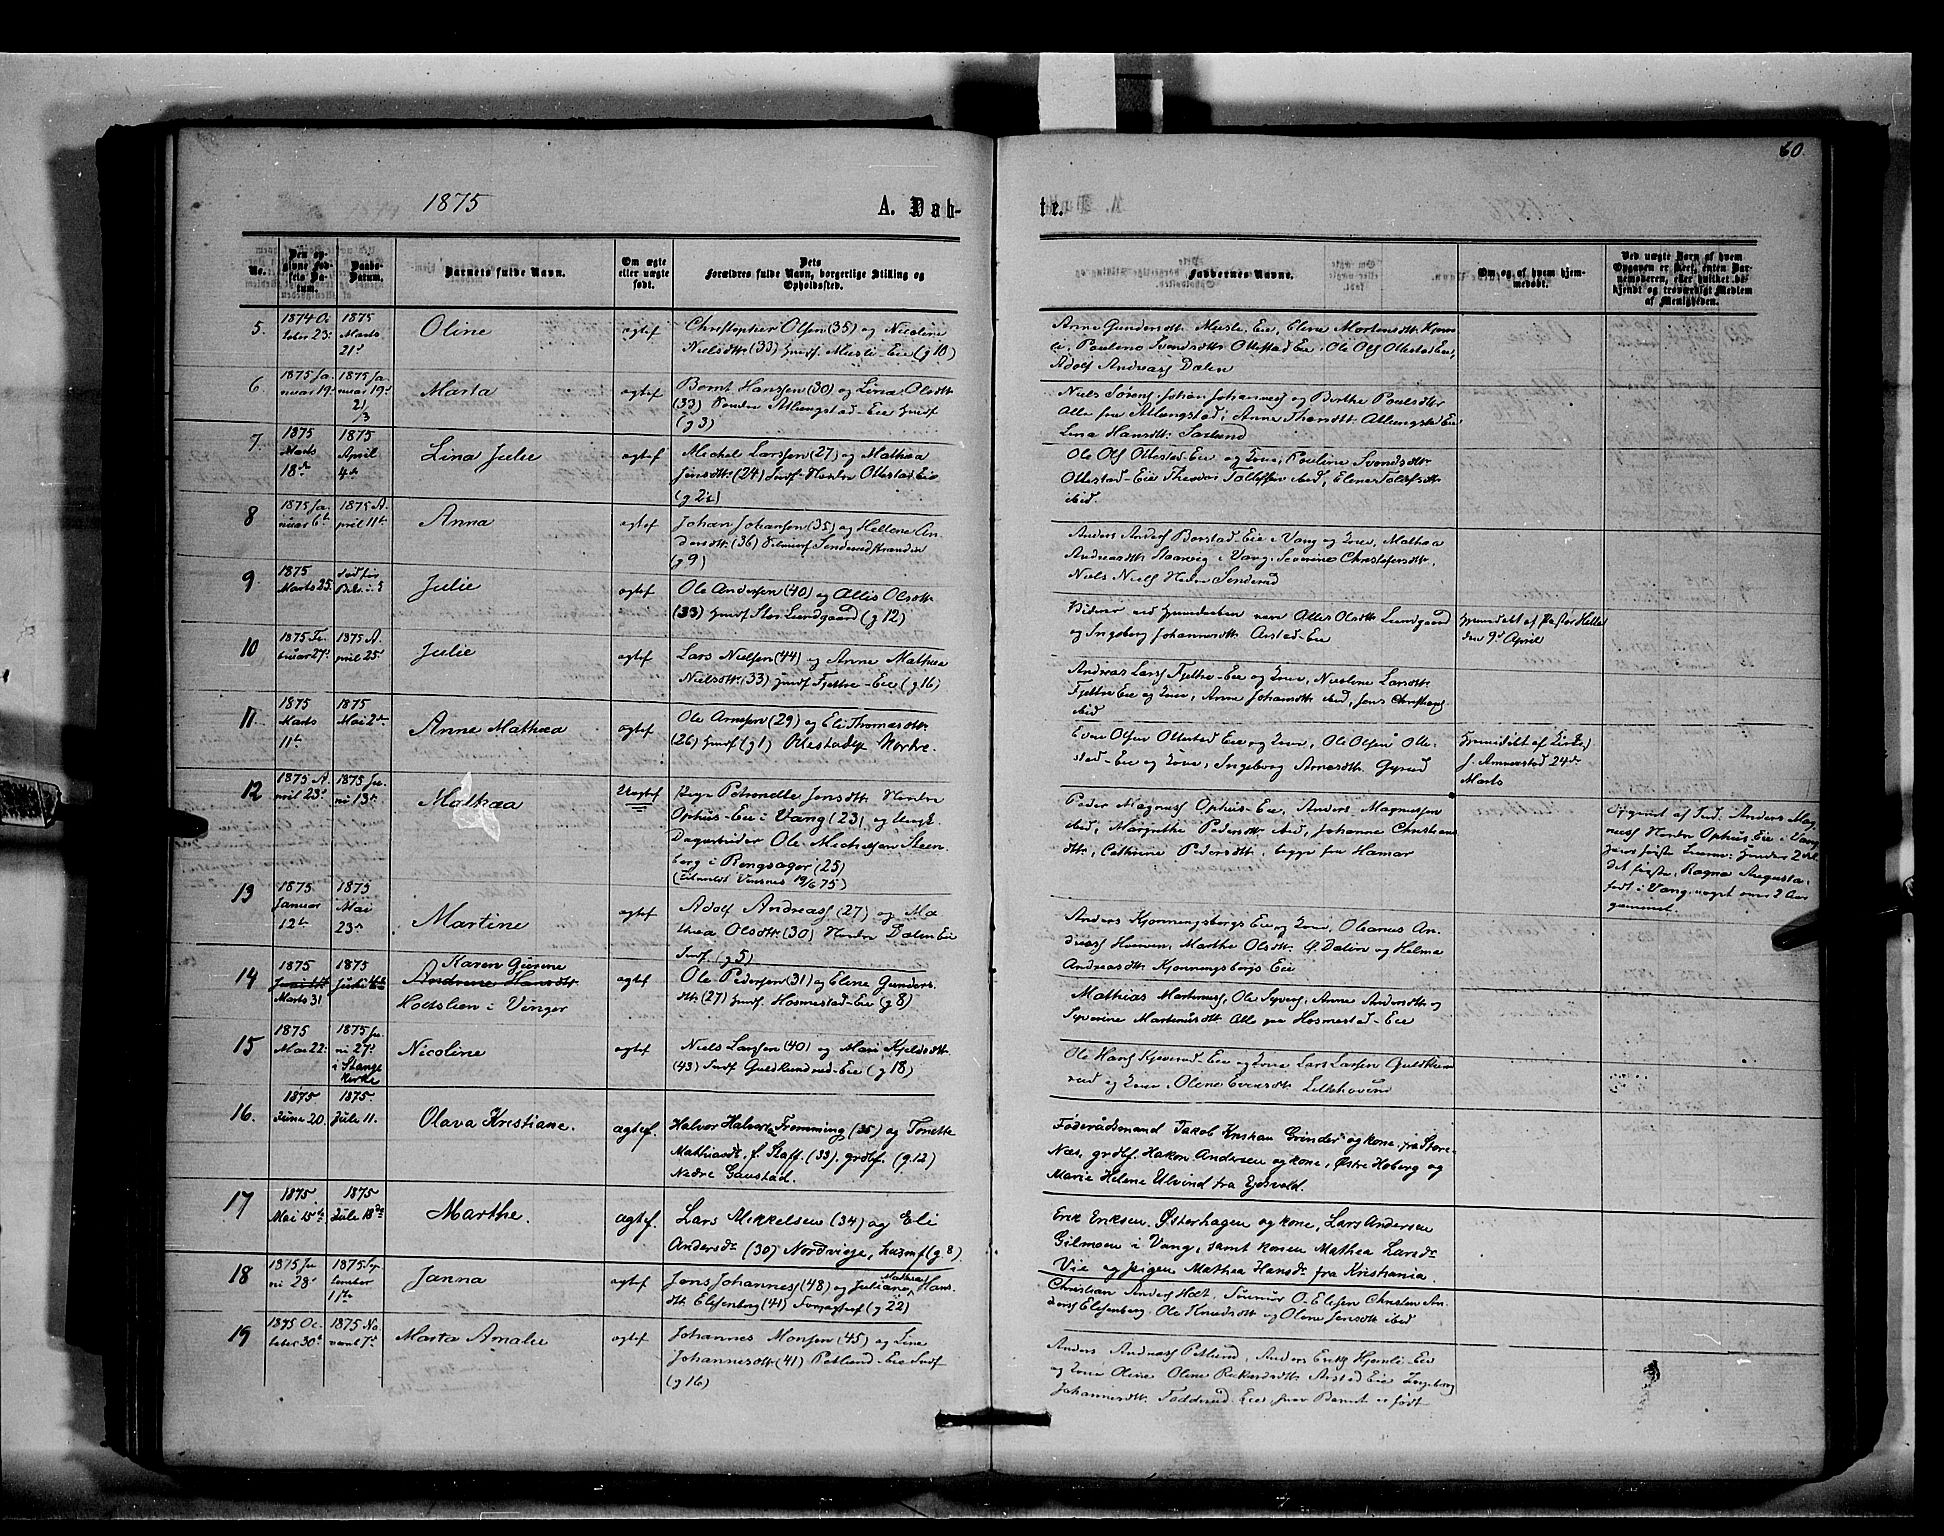 60
1875
A. Døb-
te.
No.
Den opgivne Fødsels Datum.
Daabs-Datum.
Barnets fulde Navn.
Om ægte eller uægte født.
Dets Forældres fulde Navn, borgerlige Stilling og Opholdssted.
Faddernes Navne.
Om og af hvem hjemmedøbt.
Ved uægte Børn af hvem Opgaven er skeet, enten Barnemoderen, eller hvilket bekjendt og troværdigt Medlem af Menigheden.
5.
1874 Oc
tober 23:
1875
Marts
21d
Oline
ægtef
Christopher Olsen (35) og Nicoline
Nielsdtr. (33) Husmf. Musli-Eie (g 10)
Anne Gundersdtr. Musli, Eie, Elene Mortensdtr.
Pauleno Svendsdtr. Ottestad Eie, Ole Ols Ottestad Eie,
Adolf Andreass Dalen
6
1875 Ja
nuar 19
1875 Ja
nuar 19d
21/3
Marta
ægtef
Bernt Hanssen (30) og Lina Olsdtr
(33) Søndre Atlungstad-Eie Husmf
(g 3)
Niels Sørens, Johan Johannes og Berthe Poulsdtr
Alle fra Atlungstad; Anne Atlungstad Eie
Lina Hansdtr.
7.
1875
Marts
18de
1875
April
4de
Lina Julie
ægtef
Michel Larssen (27) og Mathea
Jensdtr. (24) Indf. Nordre Ottestad Eie
(g 2)
Ole Ols Ottestad-Eie og Kone, Pauline Svendsdtr
Ottestad-Eie Theodor Tollefsen ibid, Elene Tollefsdtr
ibid.
8
1875 Ja
nuar 6te
1875 A
pril 11te
Anna
ægtef
Johan Johansen (35) og Hellene An
dersdtr. (36) Sønderudstranden
(g 9)
Anders Anders Borstad-Eie i Vang og Kone, Mathea
Andreasdtr. i Vang, Severine Christofersdtr.
Niels Niels Nedre Sønderud
9
1875
Marts 25.
Julie
ægtef
Ole Andersen (40) og Allis Olsdtr.
(33) Husmf. Stor Lundgaard (g 12)
Vidner ved Hjemmedaaben vare Allis Olsdtr. Lundgaard
og Ingeborg Johannesdtr Arstad-Eie
Hjemmedøbt af Pastor Helle
den 9d April
10
1875 Fe
bruar 27d
1875 A
pril 25d
Julie
ægtef
Lars Nielsen (44) og Anne Mathea
Nielsdtr. (33) Husmf Fjettre-Eie (g 16)
Andreas Lars Fjettre-Eie og Kone, Nicoline Larsdtr.
Fjettre Eie og Kone, Anne Johansdtr. ibid, Jens Christians
ibid
11.
1875
Marts
11te
1875
Mai 2de
Anne Mathea
ægtef
Ole Arnesen (29) og Eli Thomasdtr.
(26) Husmf (g 1) Ottestad Nordre.
Even Olsen Ottestad Eie og Kone, Ole Olsen Otte-
stad-Eie og Kone, Ingeborg Arnesdtr. Gyrud
Hjemmedøbt af Kirkes
J. Ammerstad 24de
Marts
12
1875 A
pril 23d
1875 Ju
ni 13de
Mathea
Uægtef
Pige Petronelle Jensdtr. Nordre
Ophus-Eie i Vang (23) og Ungk.
Dagarbeider Ole Michelsen Steen
borg i Ringsager (25)
(Tilmeldt Vinsnes 19/6 75)
Peder Magnuss Ophus-Eie, Anders Magnussen
ibid, Margrethe Pedersdtr. ibid, Johanne Christians
dtr, Cathrine Pedersdtr, begge fra Hamar
Opgivet af Fad. Anders Mag
nuss Nordre Ophus Eie i Vang
hans første Leierm: hendes 2det
det første, Ragna Augusta,
født i Vang noget over 2 Aar
gammel.
13
1875
Januar
12te
1875
Mai
23de
Martine
ægtef
Adolf Andreass (27) og Ma
thea Olsdtr. (30) Nordre Dælen Eie
Indf (g 5)
Anders Kjonningsbergs Eie og Kone, Oleanes An
dreass Marthe Olsdtr. Ø. Dalen og Helma
Andreasdtr. Kjonningsbergs Eie
14
1875
Marts 31
1875
Juli 4de
Karen Gurine
Andrine Hansdtr
Holtslien i Vinger
ægtef
Ole Pedersen (31) og Eline Gunders
dtr. (27) Husmf. Hosmestad-Eie (g 8)
Mathias Martinus, Ole Syvers, Anne Andersdtr og
Syverine Martinusdtr. Alle paa Hosmestad-Eie
15
1875
Mai 22:
1875 Ju
ni 27d
i Stange
Kirke
Nicoline
ægtef
Niels Larsen (40) og Mari Kjeldsdtr.
(43) Indf Guldkundrud-Eie (g 18)
Ole Hans Kjeverud-Eie og Kone Lars Larsen Guldkun
rud og Kone, Olene Evensdtr. Lillehovind
16.
1875
Juni 20.
1875
Jule 11.
Olava Kristiane.
ægtef.
Halvor Halvors. Fremming (35) og Tonette
Mathiasdt. f. Staff. (33). grdbf. (g. 12)
Nedre Gaustad.
Føderådsmand Jakob Kristian Grinder og kone, fra Store-
Næs, grdbf. Hakon Andersen og kone, Østre Hoberg og
Marie Helene Ulvind fra Ejdsvold.
17
1875
Mai 15de
1875
Jule 18de
Marthe.
ægtef.
Lars Mikkelsen (34) og Eli
Andersdr (30) Nordvieje, husmf (g. 8).
Erik Eriksen, Østerhagen og kone, Lars Andersen
Gilmoen i Vang, samt konen Mathea Larsdr
Vie og pigen Mathea Hansdr fra Kristiania.
18
1875 Ju
ni 28d
1875 Sep
tember
11te
Janna
ægtef
Jens Johannes (48) og Juliane Mathea Hans
dtr Elsenberg (41) (g 22)
Christian Anders Hæt, O. Elssen Christen An
ders Elsenberg, Ole Knudsdtr og Olene Jensdtr ibid
19
1875 Oc
tober 30te
1875 No
vemb 7d
Marta Amalie
ægtef
Johannes Monsen (45) og Line
Johannesdtr. (41) Petlund-Eie Indf
(g 16)
Anders Andreass Petlund, Anders Eriks Hjemli-Eie
og Kone Olive Oline Rickardsdtr. Arstad Eie Ingeborg
Johannesdtr. Tødderud-Eie, hvor Barnet er født